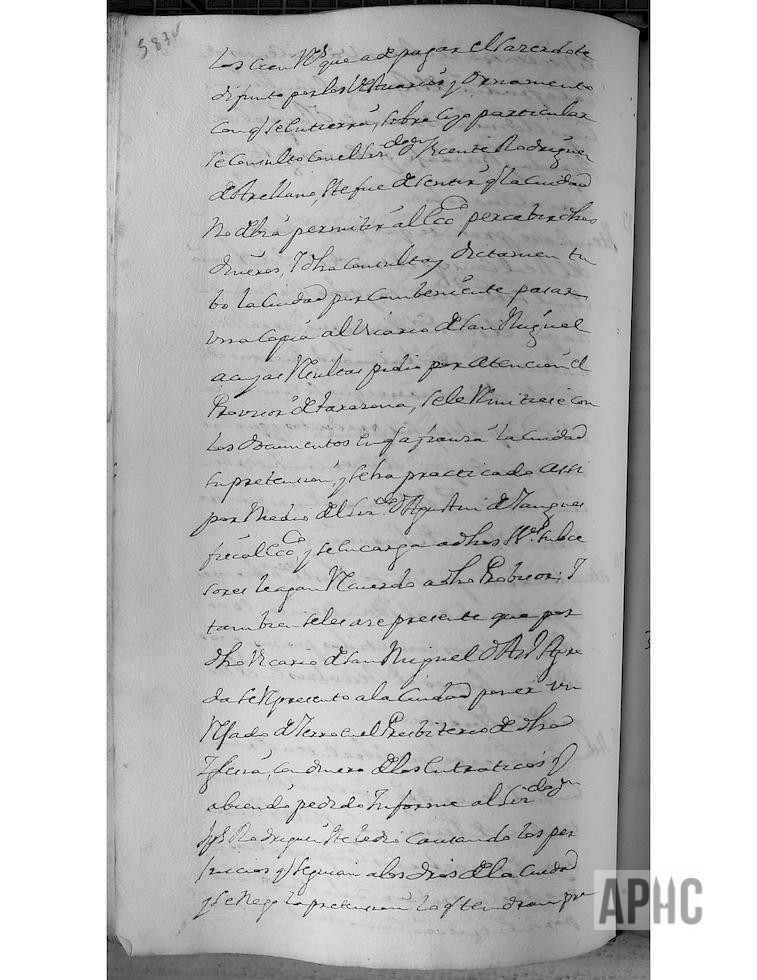 583v
los cien Rs que a de pagar el Sazerdote
difunto por los Vestuarios y Ornamento
con q se entierra, sobre cuyo particular
se consulto con el Sr Dn Vicente Rodriguez
de Arellano, este fue de sentir q la Ciudad
No debia permitir al Ecco percebir dhos
dineros, I dha consulta y dictamen tu
bo la Ciudad por combeniente pasar
una copia al Vicario de San Miguel
a cuyas Resultas pidio por atencion el
Provisor de tarazona, se le Remitiese con
los documentos en q afianza la Ciudad
su pretension, y se ha practicado assi
por Medio del Sr Dn Agustin de
al Ecco, y se encarga a dhos Sres subce
sores hagan Recuerdo a dho Probisor; I
tambien se les aze presente que por
dho Vicario de San Miguel
da se Represento a la Ciudad poner un
de Yerro en el Presbiterio de dha
Iglesia, con dinero de los q
abiendo pedido Informe al Sr Dn
Rodriguez este le dio causando los per
juicios q seguian a los dros de la Ciudad
y se Nego la pretension lo q tendran pre
APHC